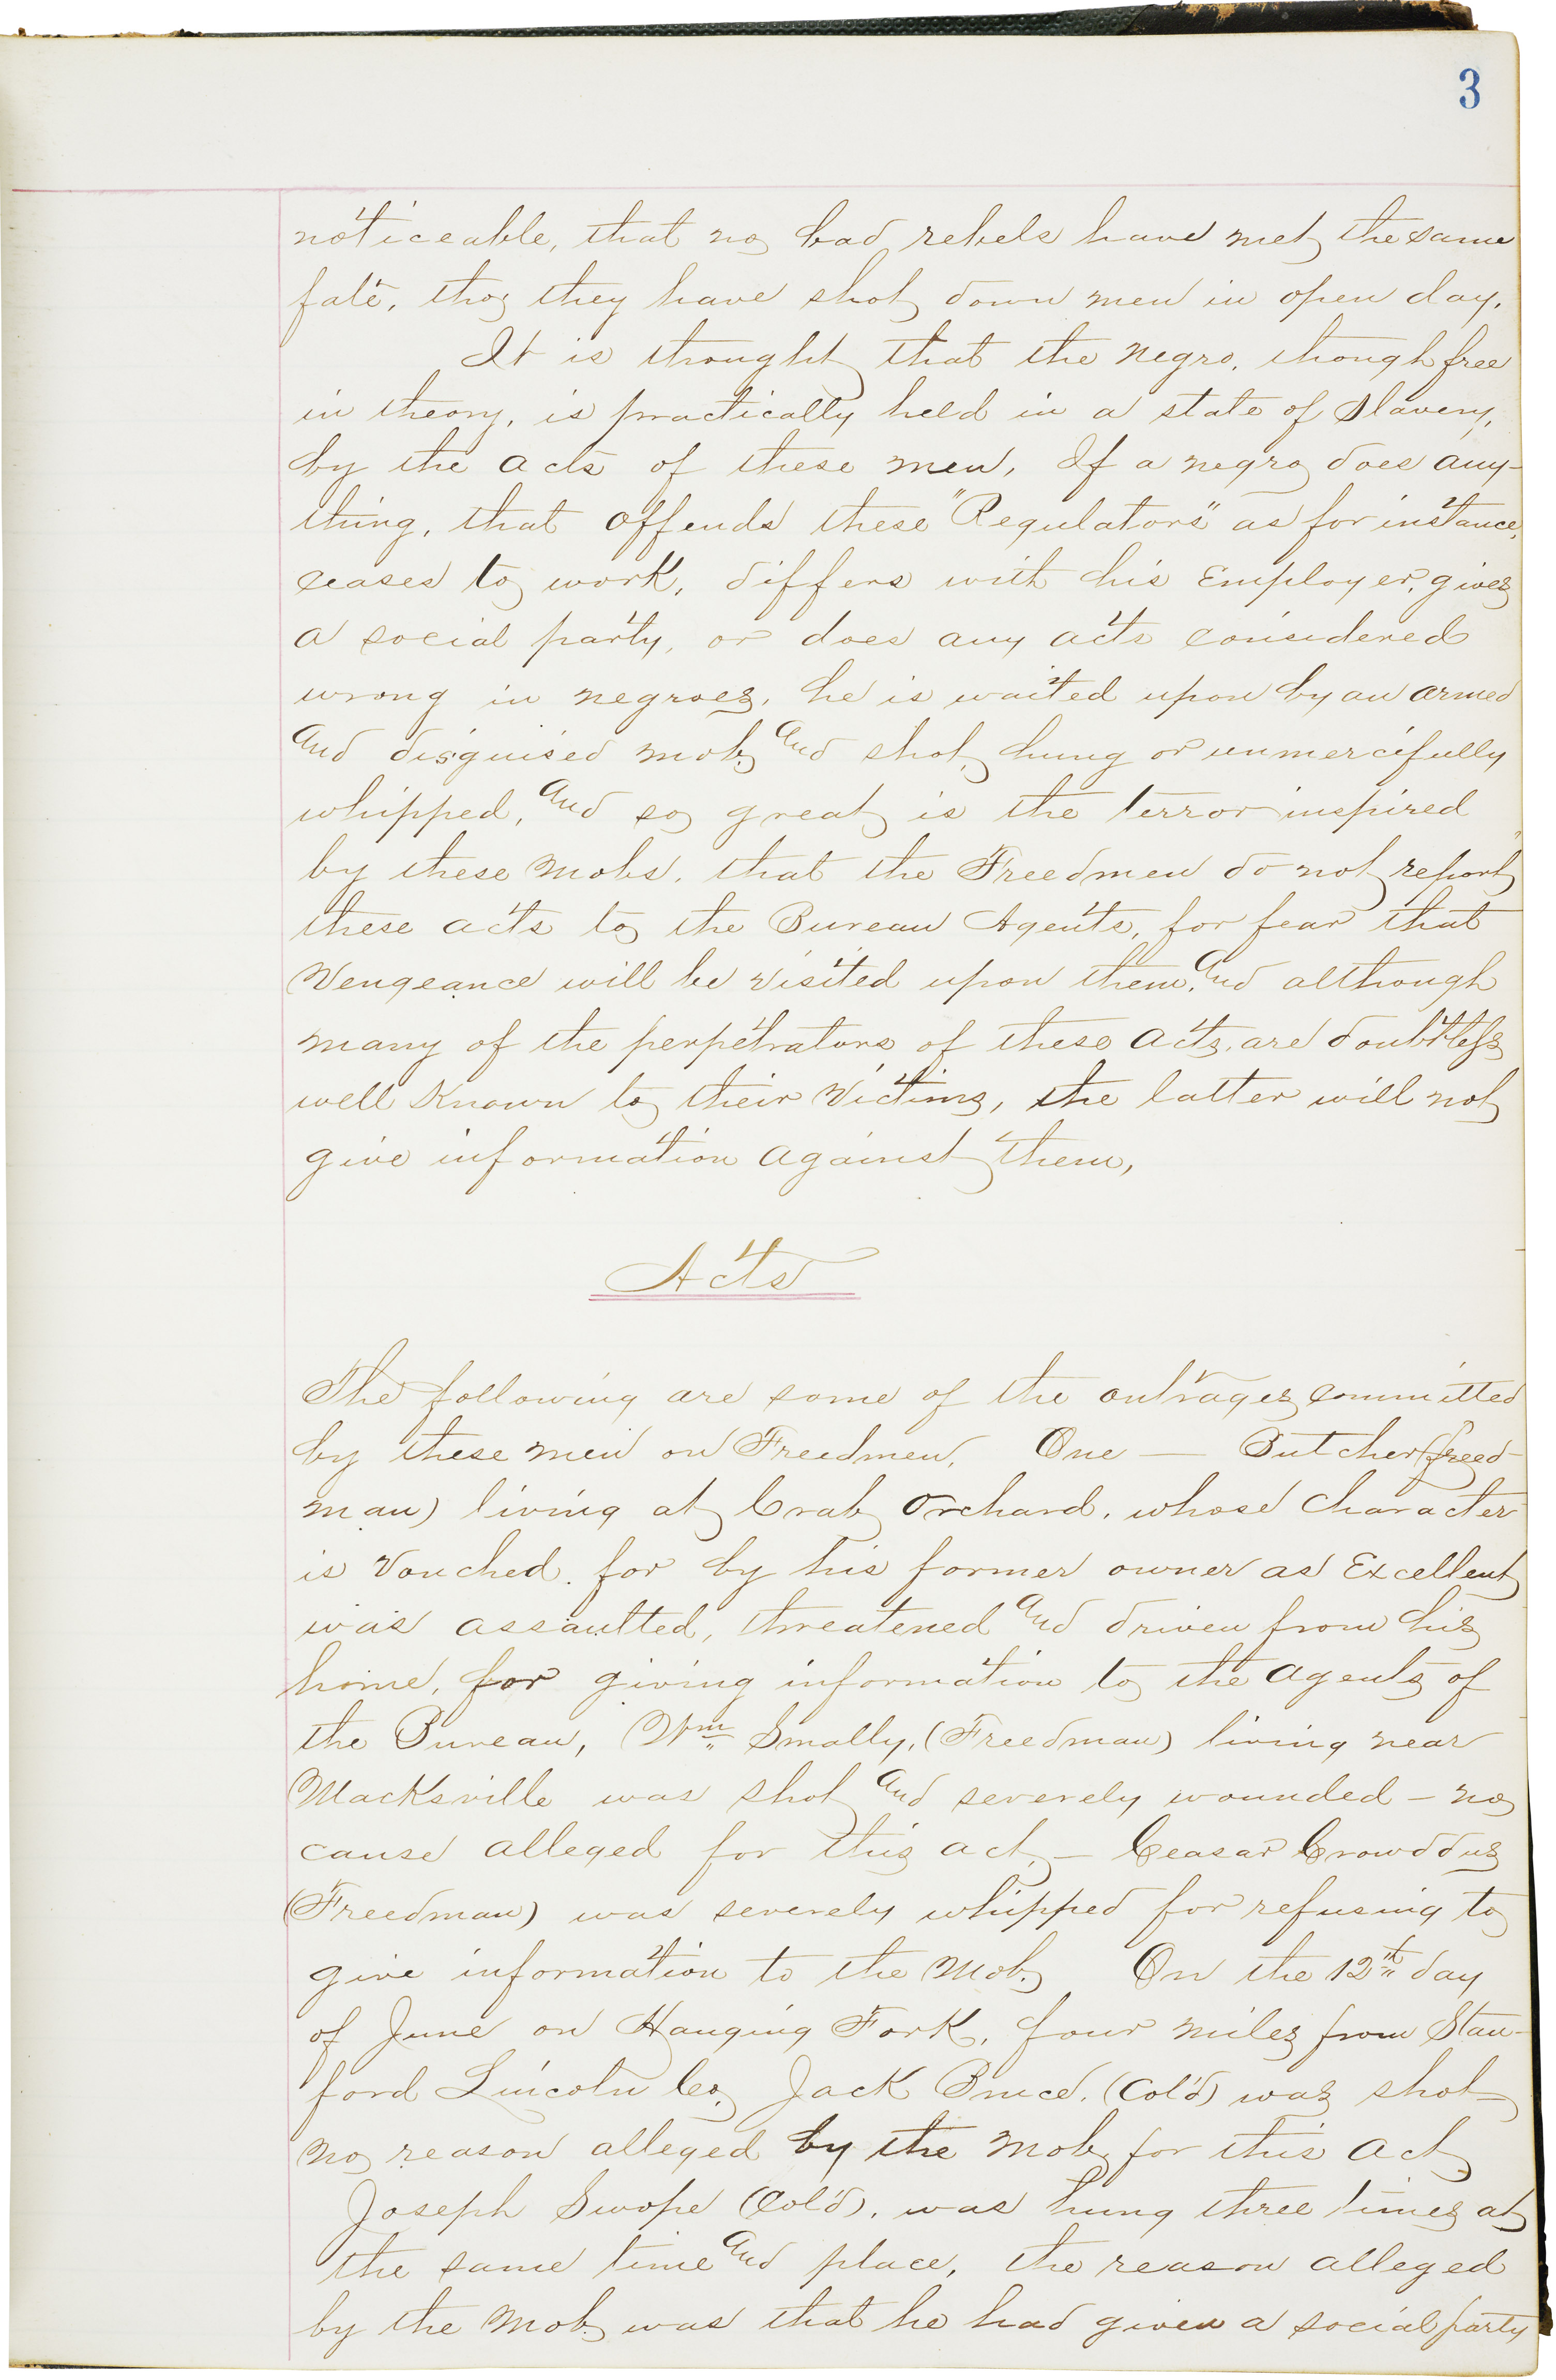 3
noticeable, that no bad rebels have met the same
fate, tho they have shot down men in open day.
It is thought that the negro, though free
in theory, is practically held in a state of Slavery,
by the acts of these men, If a negro does any-
thing, that offends these "Regulators" as for instance,
ceases to work, differs with his Employer, gives
a social party, or does any acts considered
wrong in negroes, he is waited upon by an armed
and disguised mob, and shot, hung or unmercifully
whipped, and so great is the terror inspired
by these Mobs, that the Freedmen do not report
these acts to the Bureau Agents, for fear that
Vengeance will be visited upon them, and although
many of the perpetrators of these acts, are doubtless
well Known to their Victims, the latter will not
give information against them,
Acts
The following are some of the outrages committed
by these men on Freedmen, One — Butcher (freed-
man) living at Crab Orchard, whose character
is Vouched for by his former owner as Excellent
was assaulted, threatened and driven from his
home, for giving information to the agents of
the Bureau, Wm Smally, (Freedman) living near
Macksville was shot and severely wounded – no
cause alleged for this act, – Ceasar Crowddus
(Freedman) was severely whipped for refusing to
give information to the Mob. On the 12th day
of June on Hanging Fork, four miles from Stan-
ford Lincoln Co, Jack Bruce, (Col'd) was shot
no reason alleged by the Mob for this act,
Joseph Swope (Col'd), was hung three times at
the same time and place, the reason alleged
by the Mob was that he had given a social party